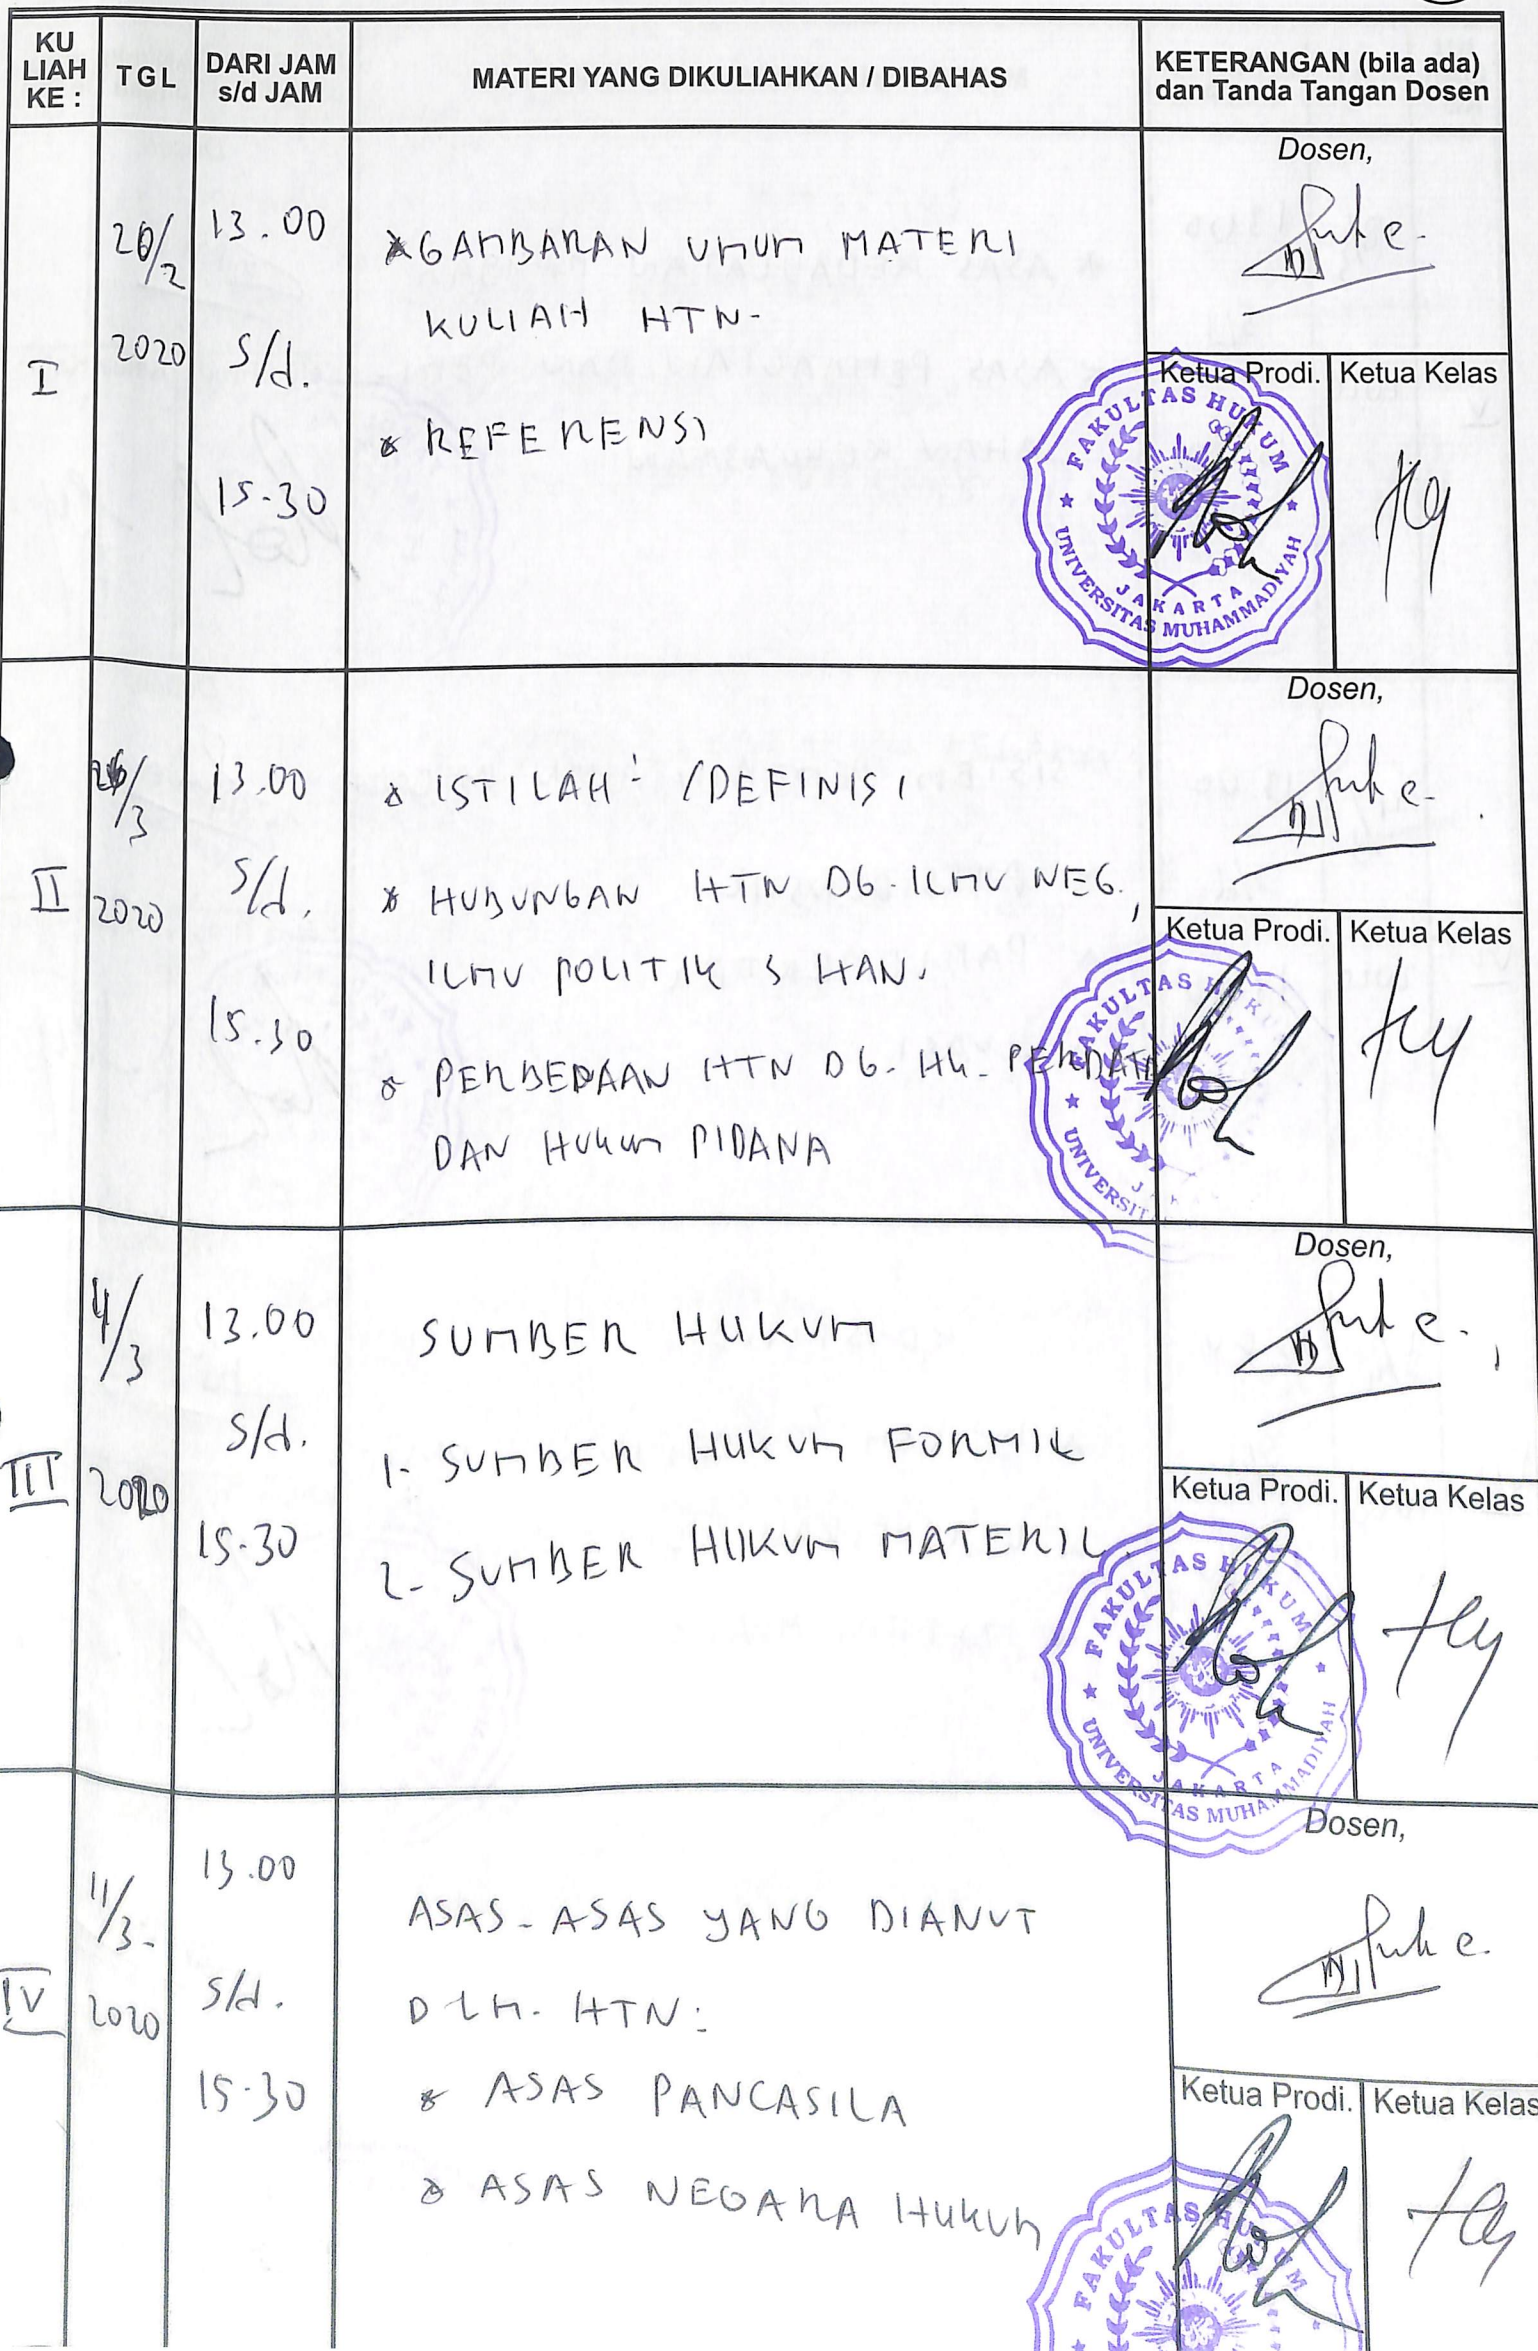 KU
LIAH
KE :
TGL
DARI JAM
s/d JAM
MATERI YANG DIKULIAHKAN / DIBAHAS
KETERANGAN (bila ada)
dan Tanda Tangan Dosen
I
2020
13.00
s/d.
15-30
* GAMBARAN UMUM MATERI
KULIAH HTN-
* REFERENSI
Dosen,
Ketua Prodi.
Ketua Kelas
FAKULTAS HUKUM
UNIVERSITAS MUHAMMADIYAH
JAKARTA
II
2020
13.00
s/d.
15.30
* ISTILAH² /DEFINISI
* HUBUNGAN HTN DG. ILMU NEG.,
ILMU POLITIK & HAN.
* PERBEDAAN HTN DG. HK. PERDATA
DAN HUKUM PIDANA
Dosen,
Ketua Prodi.
Ketua Kelas
FAKULTAS HUKU
UNIVERSIT
III
4/3
2020
13.00
s/d.
15-30
SUMBER HUKUM
1- SUMBER HUKUM FORMIL
2- SUMBER HUKUM MATERIL.
Dosen,
Ketua Prodi.
Ketua Kelas
FAKULTAS HUKUM
UNIVERSITAS MUHAMMADIYAH
JAKARTA
IV
11/3-
2020
13.00
s/d.
15-30
ASAS-ASAS YANG DIANUT
DLM. HTN:
* ASAS PANCASILA
* ASAS NEGARA HUKUM
Dosen,
Ketua Prodi.
Ketua Kelas
FAKULTAS HUKUM